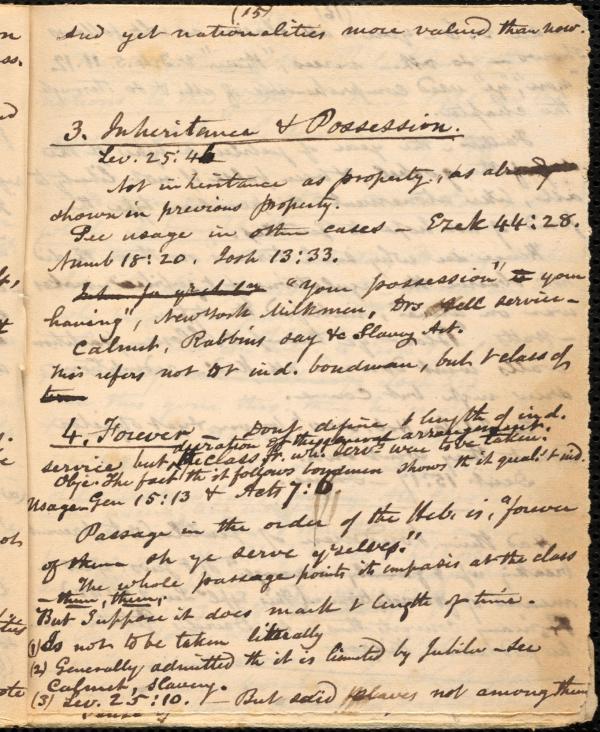 (15)
and yet nationalities more valued than now.
3. Inheritance & Possession.
Lev. 25:46
Not inheritance as property, as already
shown in previous property.
See usage in other cases – Ezek 44:28.
Numb 18:20. Josh 13:33.
"Your possession" your
having", New York Milkmen, Drs sell service –
Calmet, Rabbins say &c Slavery Art.
This refers not to t ind. bondman, but t class of
4. Forever – Dont define t length of ind.
duration of the general arrangement.
service but the class fr. wh. serv. were to be taken.
Obje. The fact th it follows bondmen shows th it qual. t ind.
Usage – Gen 15:13 & Acts 7:6.
Passage in the order of the Heb. is, "forever
of them sh ye serve y'selves."
The whole passage points its emphasis at the class
– them, them,
But suppose it does mark t length of time.
(1) Is not to be taken literally
(2) Generally admitted th it is limited by Jubilee – see
Calmet, Slavery.
(3) Lev. 25:10. – But said slaves not among them